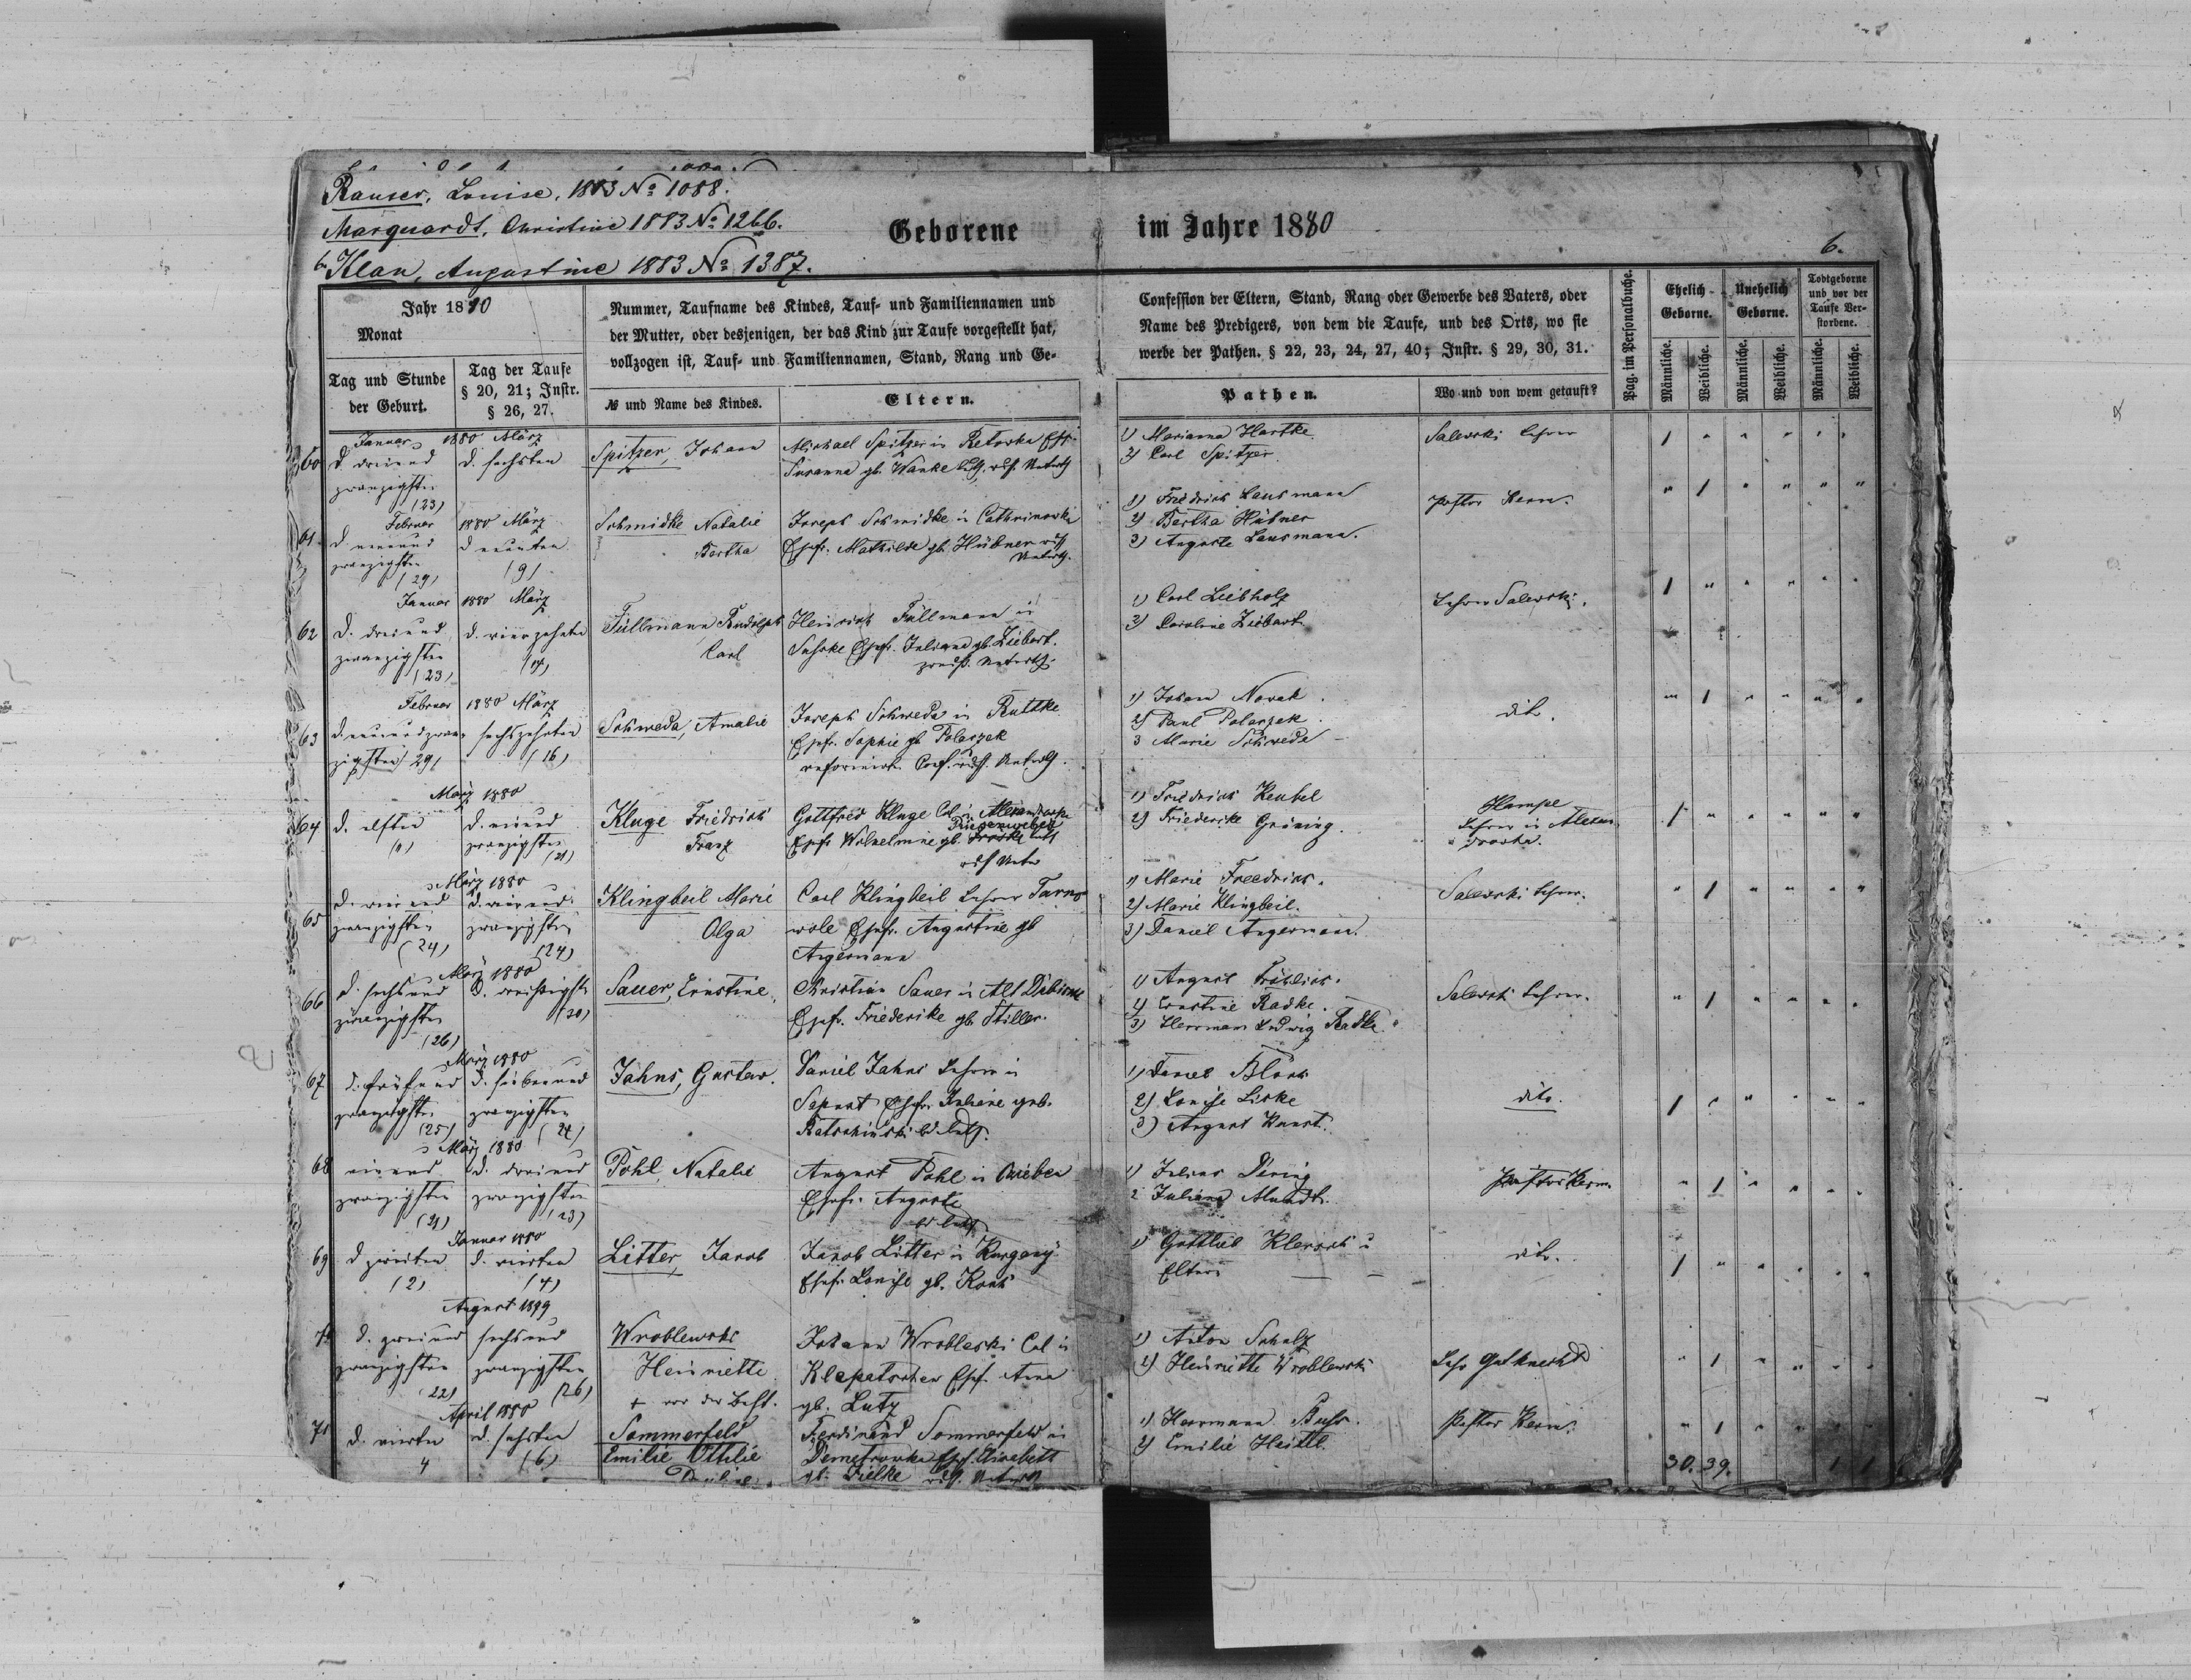 Rauser, Louise, 1883 № 1088.
Marquardt, Christine 1883 № 1266.
Klan, Augustine 1883 № 1387.
Geborene im Jahre 1880
6.
Jahr 1880
Monat
Tag und Stunde der Geburt.
Tag der Taufe § 20, 21; Instr. § 26, 27.
Nummer, Taufname des Kindes, Tauf- und Familiennamen und
der Mutter, oder desjenigen, der das Kind zur Taufe vorgestellt hat,
vollzogen ist, Tauf- und Familiennamen, Stand, Rang und Ge-
№ und Name des Kindes.
Eltern.
Confession der Eltern, Stand, Rang oder Gewerbe des Vaters, oder
Name des Predigers, von dem die Taufe, und des Orts, wo sie
werbe der Pathen. § 22, 23, 24, 27, 40; Instr. § 29, 30, 31.
Pathen.
Wo und von wem getauft?
Pag. im Personalbuche.
Ehelich Geborne.
Unehelich Geborne.
Todtgeborne und vor der Taufe Verstorbene.
Männliche.
Weibliche.
Männliche.
Weibliche.
Männliche.
Weibliche.
60
Januar 1880 März
d. dreiund d. sechsten
zwanzigsten
(23)
Spitzer, Johann
Michael Spitzer in
Susanna gb. Wanke
1) Marianna Hartke
2) Carl Spitzer.
Salewski Lehrer
61
Februar 1880 März
d. neunund d neunten
zwanzigsten
(29) (9)
Schmidke Natalie
Bertha
Joseph Schmidke in Cathrinowka
Ehefr. Mathilde gb. Hübner
1) Friedrich Lausmann
2) Bertha Hübner
3) Auguste Lausmann.
Pastor Kern.
62
Januar 1880 März
d. dreiund d. vierzehnten
zwanzigsten (14)
(23)
Füllmann Rudolph
Carl
Heinrich Füllmann in
Ehefr. Juliana gb. Ziebart.
1) Carl Liebholz
2) Caroline Ziebart
Lehrer Salewski.
63
Februar 1880 März
d. neunundzwan- sechszehnten
zigsten 29, (16)
Schweda, Amalie
Joseph Schweda in Ruttke
Ehefr. Sophie gb Polaszek
reformirte Conf.
1) Johann Novak.
2) Paul Polaszek.
3 Marie Schweda
dito.
64
März 1880
d. elften d. einund
(11) zwanzigsten
(21)
Kluge Friedrich
Franz
Gottfried Kluge Col. in Alexandrowka
Riesenweber
Ehefr Wilhelmine gb.
1) Friedrich Keubel
2) Friederike Gröning.
Hampe
Lehrer in Alexan-
drowka.
65
März 1880
d. vierund d. vierund
zwanzigsten zwanzigsten
(24) (24)
Klingbeil Marie
Olga
Carl Klingbeil Lehrer Tarno
wole Ehefr. Augustine gb
Angermann
1) Marie Freedrich.
2) Marie Klingbeil.
3) Daniel Angermann.
Salewski Lehrer.
66
März 1880
d. sechsund d. dreißigsten
zwanzigsten (30)
(26)
Sauer, Ernstine,
Christian Sauer in Alt
Ehefr. Friederike gb. Stiller.
1) August Fröhlich.
2) Ernstine Radke.
3) Herrmann Ludwig Radke.
Salewski Lehrer.
67
März 1880
d. fünfund d. siebenund
zwanzigsten zwanzigsten
(25) (27)
Jahns, Gustav.
Daniel Jahns Lehrer in
Ehefr. Juliane geb.
1) Daniel Block
2) Louise Liske
3) August Kunst.
dito.
68
März 1880
einund d. dreiund
zwanzigsten zwanzigsten
(21) (23)
Pohl, Natalie
August Pohl in
Ehefr. Auguste
1) Julius Döring
2 Juliana Mundt.
Pastor Kern
69
Januar 1880
d zweiten d. vierten
(2) (4)
Litter, Jacob
Jacob Litter in Kurgany
Ehefr. Louise gb. Koch
1) Gottlieb Klerork u
Eltern
dito.
70
August 1879
d. zweiund sechsund
zwanzigsten zwanzigsten
(22) (26)
Wroblewski
Henriette
+ vor der Best.
Johann Wrobleski Col in
Klopatschew Ehefr. Anna
gb. Lutz
1) Anton Schulz
2) Henriette Wroblewski
Lehr Gutknecht
71
April 1880
d. vierten d. sechsten
4 (6)
Sommerfeld
Emilie Ottilie
Pauline
Ferdinand Sommerfeld in
Demetrowka Ehefr. Elisabeth
gb. Zielke
1) Herrmann Buhr.
2) Emilie Heitel.
Pastor Kern.
30. 39. 1 1